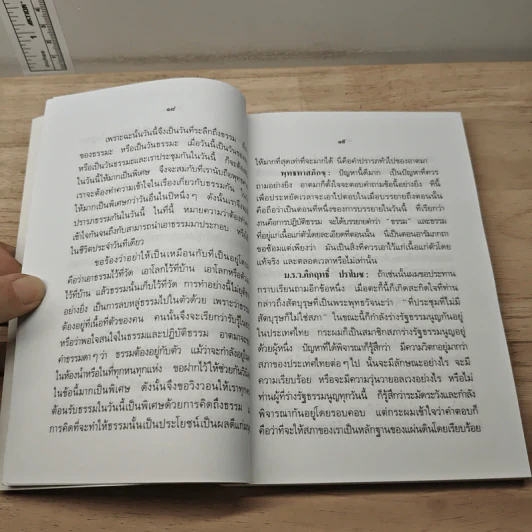 ๑๘
เพราะฉะนั้นวันนี้จึงเป็นวันที่ระลึกถึงธรรม
ของธรรมะ หรือเป็นวันธรรมะ เมื่อวันนี้เป็นวัน
หรือเป็นวันธรรมะและเราประชุมกันในวันนี้ ก็จะต้อง
ในวันนี้ให้มากเป็นพิเศษ จึงจะสมกับที่เรานับถือ
เราจะต้องทำความเข้าใจในเรื่องเกี่ยวกับธรรมกัน
ให้มากเป็นพิเศษกว่าวันอื่นในปีหนึ่งๆ ดังนั้น เราจึง
ปรารภธรรมกันในวันนี้ ในที่นี้ หมายความว่าต้อง
เข้าใจกันจนถึงกับสามารถนำเอาธรรมมาประกอบ หรือ
ในชีวิตประจำวันทีเดียว
ขอร้องว่าอย่าให้เป็นเหมือนกับที่เป็นอยู่
คือว่าเอาธรรมไว้ที่วัด เอาโลกไว้ที่บ้าน เอาโลกหรือตัว
ไว้ที่บ้าน แล้วธรรมนั้นเก็บไว้ที่วัด การทำอย่างนี้ไม่
อย่างยิ่ง เป็นการลบหลู่ธรรมไปในตัวด้วย เพราะว่าธรรม
ต้องอยู่ที่เนื้อที่ตัวของคน คนนั้นจึงจะเรียกว่ารับรู้
หรือว่าพอใจสนใจในธรรมและปฏิบัติธรรม อาตมา
คำธรรมดาๆว่า ธรรมต้องอยู่กับตัว แม้ว่าจะกำลังอยู่
ในห้องน้ำหรือในที่ทุกหนทุกแห่ง ขอฝากไว้ให้ช่วยกัน
ในข้อนี้มากเป็นพิเศษ ดังนั้นจึงขอวิงวอนให้เราทุก
ต้อนรับธรรมในวันนี้เป็นพิเศษด้วยการคิดถึงธรรม
การคิดที่จะทำให้ธรรมนั้นเป็นประโยชน์เป็นผลดีแก่
๑๙
ให้มากที่สุดเท่าที่จะมากได้ นี่คือคำปรารภทั่วไปของอาตมา
พุทธทาสภิกขุ: ปัญหานี้ดีมาก เป็นปัญหาที่ควร
ถามอย่างยิ่ง อาตมาก็ตั้งใจจะตอบคำถามข้อนี้อย่างยิ่ง ทีนี้
เพื่อประหยัดเวลาจะเอาไปตอบในเมื่อบรรยายถึงตอนนั้น
คือถือว่าเป็นตอนที่หนึ่งของการบรรยายในวันนี้ ที่เรียกว่า
งานคือการปฏิบัติธรรม จะได้บรรยายคำว่า "ธรรม" และธรรม
ที่อยู่แก่เนื้อแก่ตัวโดยละเอียดที่ตอนนั้น นี่เป็นตอนอารัมภกถา
ขอซ้อมแต่เพียงว่า มันเป็นสิ่งที่ควรเอาไว้แก่เนื้อแก่ตัวโดย
แท้จริง และตลอดเวลาหรือไม่เท่านั้น
ม.ร.ว.คึกฤทธิ์ ปราโมช: ถ้าเช่นนั้นผมขอประทาน
กราบเรียนถามอีกข้อหนึ่ง เมื่อตะกี้นี้ก็เกิดสะกิดใจที่ท่าน
กล่าวถึงสัตบุรุษที่เป็นพระพุทธวัจนะว่า "ที่ประชุมที่ไม่มี
สัตบุรุษก็ไม่ใช่สภา" ในขณะนี้ก็กำลังร่างรัฐธรรมนูญกันอยู่
ในประเทศไทย กระผมก็เป็นสมาชิกสภาร่างรัฐธรรมนูญอยู่
ด้วยผู้หนึ่ง ปัญหาที่ได้พิจารณาก็รู้สึกว่า มีความวิตกอยู่มากว่า
สภาของประเทศไทยต่อๆไป นั้นจะมีลักษณะอย่างไร จะมี
ความเรียบร้อย หรือจะมีความวุ่นวายอลเวงอย่างไร หรือไม่
ท่านผู้ที่ร่างรัฐธรรมนูญทุกวันนี้ ก็รู้สึกว่าระมัดระวังและกำลัง
พิจารณากันอยู่โดยรอบคอบ แต่กระผมเข้าใจว่าคำตอบก็
คือว่าที่จะให้สภาของเราเป็นหลักฐานของแผ่นดินโดยเรียบร้อย